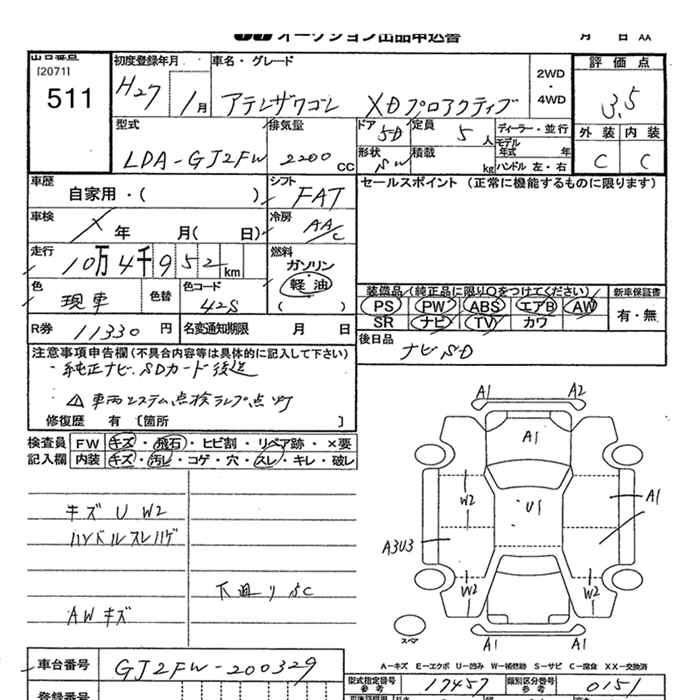 オークション出品申込書 月 日 AA
出品番号 初度登録年月 車名・グレード 評価点
[2071]
511 H27 1月 アテンザワゴン XDプロアクティブ 2WD・4WD 3.5
型式 排気量 ドア 5D 定員 5人 ディーラー・並行 外装 内装
LDA-GJ2FW 2200CC 形状 SW 積載 kg モデル年式 年 C C
ハンドル 左・右
車歴 シフト セールスポイント (正常に機能するものに限ります)
自家用・( ) FAT
車検 冷房
X 年 月( 日) AA/C
走行 燃料
10万4千952km ガソリン
軽油
( )
色 色替 色コード 装備品(純正品に限り○をつけてください) 新車保証書
現車 42S PS PW ABS エアB AW 有・無
SR ナビ TV カワ
R券 11330円 名変通知期限 月 日 後日品
ナビSD
注意事項申告欄(不具合内容等は具体的に記入して下さい)
・純正ナビ、SDカード後送
⚠車両システム点検ランプ点灯
修復歴 有〔箇所 〕
検査員 FW キズ・飛石・ヒビ割・リペア跡・×要
記入欄 内装 キズ・汚レ・コゲ・穴・スレ・キレ・破レ
キズ U W2
ハンドルスレハゲ
下廻りSC
AWキズ
A1 A2
A1
W2 U1 A1
A3U3
W2 W2
スペア
A1 A1
A―キズ E―エクボ U―凹み W―補修跡 S―サビ C―腐食 XX―交換済
車台番号 GJ2FW-200329
型式指定番号 参考 17457 類別区分番号 参考 0151
登録番号